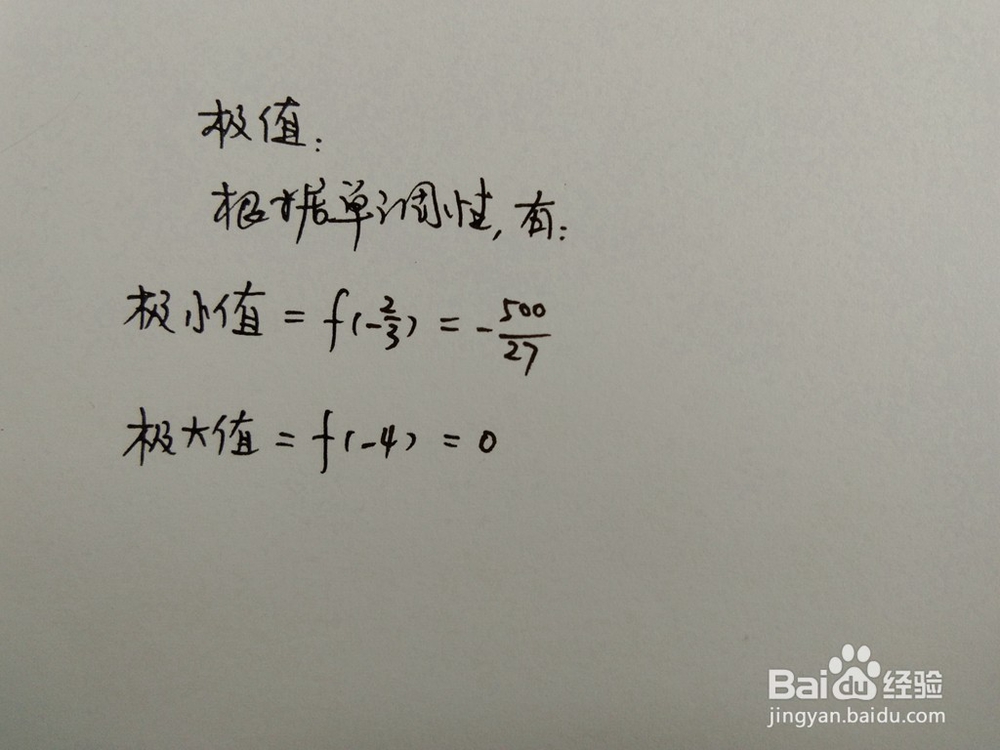 极值：
根据单调性，有：
极小值 = f(-2/3) = -500/27
极大值 = f(-4) = 0
Baidu经验
jingyan.baidu.com